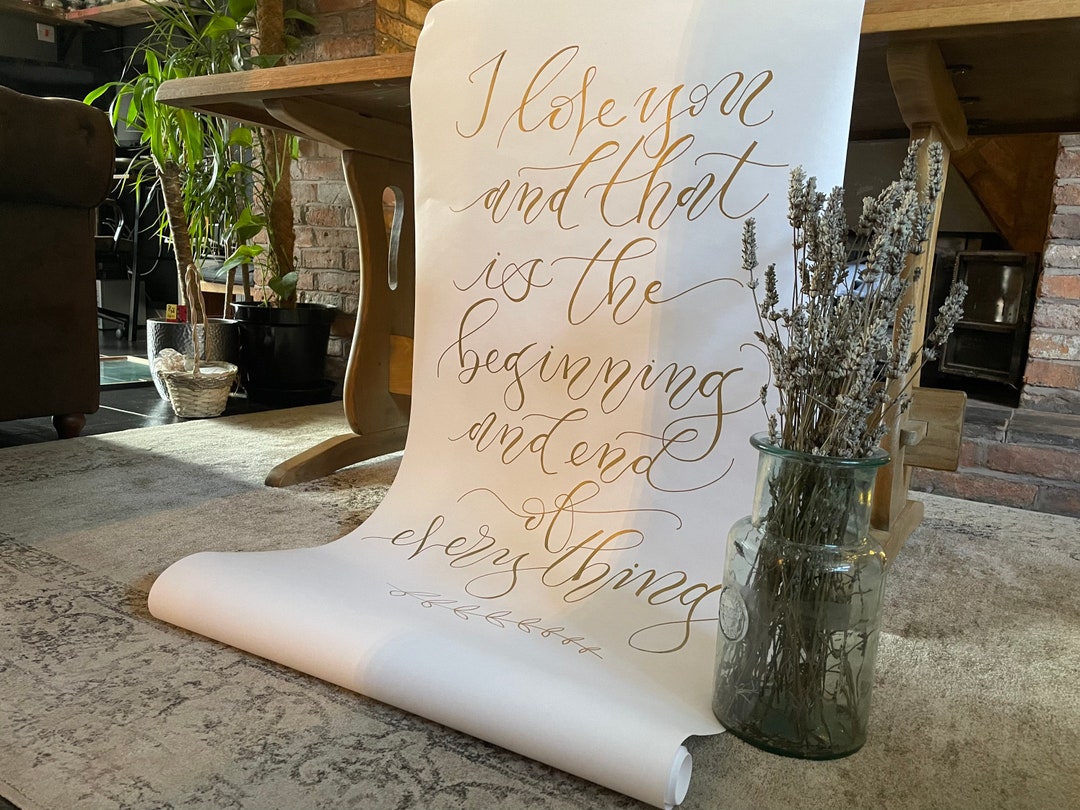 I love you
and that
is the
beginning
and end
of
everything